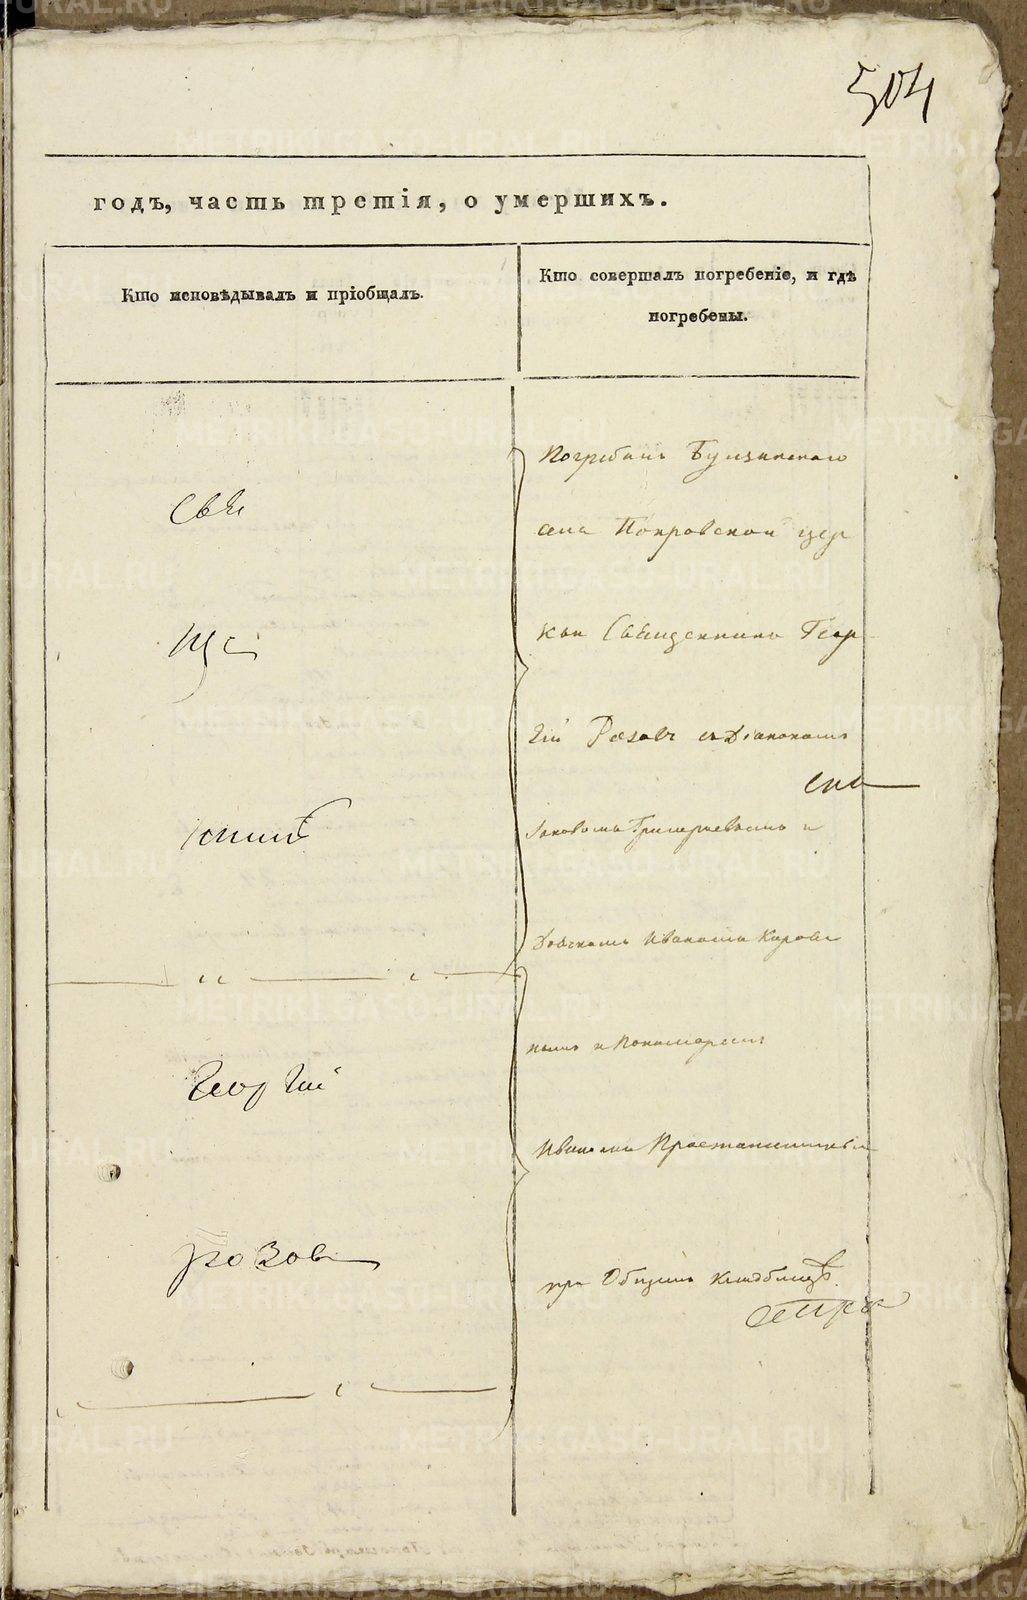 504
годъ, часть третія, о умершихъ.
Кто исповѣдывалъ и пріобщалъ.
Кто совершалъ погребеніе, и гдѣ
погребены.
Свя
ще
нникъ
Георгій
розовъ
Погребалъ
села Покровской цер
кви Священникъ Геор
гій Розовъ съ Діакономъ
Іаковомъ Григорьевымъ и
Дьячкомъ Иваномъ
номъ и Пономаремъ
Иваномъ
при Общемъ кладбищѣ
METRIKI.GASO-URAL.RU